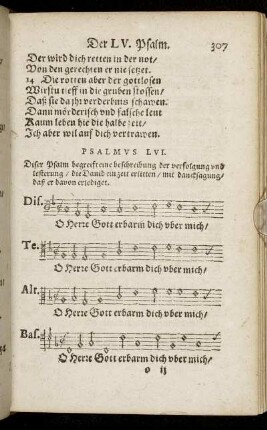 Der LV. Psalm. 307
Der wird dich retten in der not/
Von den gerechten er nie setzet.
14 Die rotten aber der gottlosen
Wirstu tieff in die gruben stossen/
Daß sie da jhr verderbnis schawen.
Dann mörderisch vnd falsche leut
Kaum leben hie die halbe zeit/
Ich aber wil auf dich vertrawen.
PSALMVS LVI.
Diser Psalm begreift eine beschreibung der verfolgung vnd
lesterung / die David ein zeit erlitten / mit dancksagung/
daß er davon erlediget.
Dis.
O Herre Gott erbarm dich vber mich/
Te.
O Herre Gott erbarm dich vber mich/
Alt.
O Herre Gott erbarm dich vber mich/
Bas.
O Herre Gott erbarm dich vber mich/
o ij